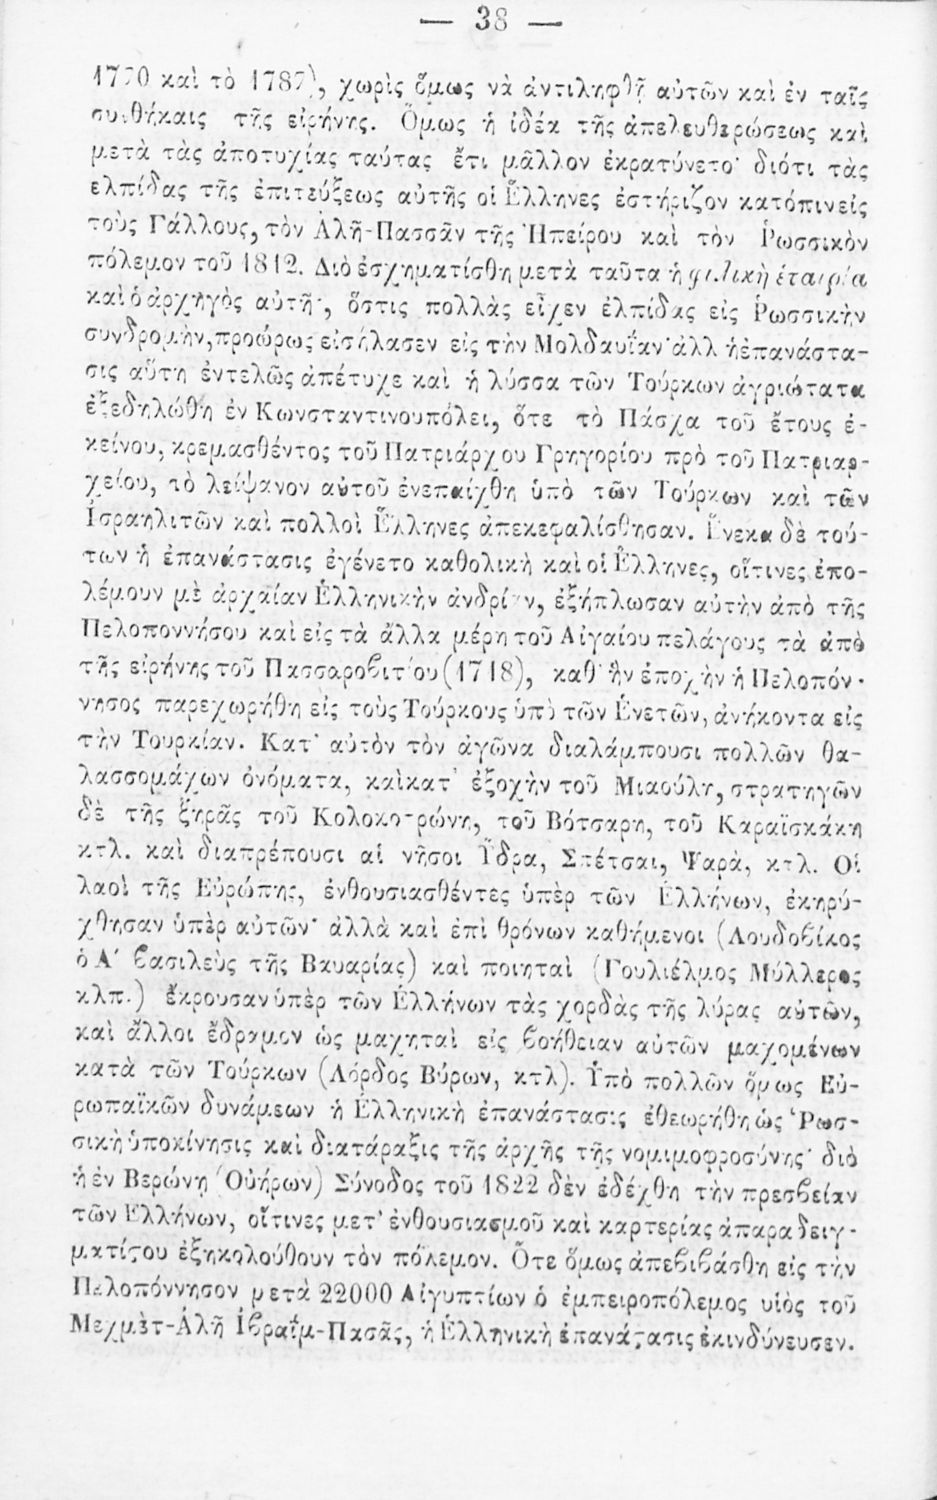 — 38 —
1770 καὶ τὸ 1787), χωρὶς ὅμως νὰ ἀντιληφθῇ αὐτῶν καὶ ἐν ταῖς
συνθήκαις τῆς εἰρήνης. Ὅμως ἡ ἰδέα τῆς ἀπελευθερώσεως καὶ
μετὰ τὰς ἀποτυχίας ταύτας ἔτι μᾶλλον ἐκρατύνετο· διότι τὰς
ἐλπίδας τῆς ἐπιτεύξεως αὐτῆς οἱ Ἕλληνες ἐστήριζον κατόπιν εἰς
τοὺς Γάλλους, τὸν Ἀλῆ-Πασσᾶν τῆς Ἠπείρου καὶ τὸν Ῥωσσικὸν
πόλεμον τοῦ 1812. Διὸ ἐσχηματίσθη μετὰ ταῦτα ἡ φιλικὴ ἑταιρία
καὶ ὁ ἀρχηγὸς αὐτῆς, ὅστις πολλὰς εἶχεν ἐλπίδας εἰς Ῥωσσικὴν
συνδρομὴν, προώρως εἰσήλασεν εἰς τὴν Μολδαυΐαν· ἀλλ ἡ ἐπανάστα-
σις αὕτη ἐντελῶς ἀπέτυχε καὶ ἡ λύσσα τῶν Τούρκων ἀγριώτατα
ἐξεδηλώθη ἐν Κωνσταντινουπόλει, ὅτε τὸ Πάσχα τοῦ ἔτους ἐ-
κείνου, κρεμασθέντος τοῦ Πατριάρχου Γρηγορίου πρὸ τοῦ Πατριαρ-
χείου, τὸ λείψανον αὐτοῦ ἐνεπαίχθη ὑπὸ τῶν Τούρκων καὶ τῶν
Ἰσραηλιτῶν καὶ πολλοὶ Ἕλληνες ἀπεκεφαλίσθησαν. Ἕνεκα δὲ τού-
των ἡ ἐπανάστασις ἐγένετο καθολικὴ καὶ οἱ Ἕλληνες, οἵτινες ἐπο-
λέμουν μὲ ἀρχαίαν Ἑλληνικὴν ἀνδρίαν, ἐξήπλωσαν αὐτὴν ἀπὸ τῆς
Πελοποννήσου καὶ εἰς τὰ ἄλλα μέρη τοῦ Αἰγαίου πελάγους τὰ ἀπὸ
τῆς εἰρήνης τοῦ Πασσαροβιτ'ου (1718), καθ' ἣν ἐποχὴν ἡ Πελοπόν-
νησος παρεχωρήθη εἰς τοὺς Τούρκους ὑπὸ τῶν Ἑνετῶν, ἀνήκοντα εἰς
τὴν Τουρκίαν. Κατ' αὐτὸν τὸν ἀγῶνα διαλάμπουσι πολλῶν θα-
λασσομάχων ὀνόματα, καὶ κατ' ἐξοχὴν τοῦ Μιαούλη, στρατηγῶν
δὲ τῆς ξηρᾶς τοῦ Κολοκοτρώνη, τοῦ Βότσαρη, τοῦ Καραϊσκάκη
κτλ. καὶ διαπρέπουσι αἱ νῆσοι Ὕδρα, Σπέτσαι, Ψαρὰ, κτλ. Οἱ
λαοὶ τῆς Εὐρώπης, ἐνθουσιασθέντες ὑπὲρ τῶν Ἑλλήνων, ἐκηρύ-
χθησαν ὑπὲρ αὐτῶν· ἀλλὰ καὶ ἐπὶ θρόνων καθήμενοι (Λουδοβίκος
ὁ Α' βασιλεὺς τῆς Βαυαρίας) καὶ ποιηταὶ (Γουλιέλμος Μύλλερος
κλπ.) ἔκρουσαν ὑπὲρ τῶν Ἑλλήνων τὰς χορδὰς τῆς λύρας αὐτῶν,
καὶ ἄλλοι ἔδραμον ὡς μαχηταὶ εἰς βοήθειαν αὐτῶν μαχομένων
κατὰ τῶν Τούρκων (Λόρδος Βύρων, κτλ). Ὑπὸ πολλῶν ὅμως Εὐ-
ρωπαϊκῶν δυνάμεων ἡ Ἑλληνικὴ ἐπανάστασις ἐθεωρήθη ὡς Ῥωσ-
σικὴ ὑποκίνησις καὶ διατάραξις τῆς ἀρχῆς τῆς νομιμοφροσύνης· διὸ
ἡ ἐν Βερώνῃ (Οὐήρων) Σύνοδος τοῦ 1822 δὲν ἐδέχθη τὴν πρεσβείαν
τῶν Ἑλλήνων, οἵτινες μετ' ἐνθουσιασμοῦ καὶ καρτερίας ἀπαραδειγ-
ματίστου ἐξηκολούθουν τὸν πόλεμον. Ὅτε ὅμως ἀπεβιβάσθη εἰς τὴν
Πελοπόννησον μετὰ 22000 Αἰγυπτίων ὁ ἐμπειροπόλεμος υἱὸς τοῦ
Μεχμὲτ-Ἀλῆ Ἰβραΐμ-Πασᾶς, ἡ Ἑλληνικὴ ἐπανάστασις ἐκινδύνευσεν.